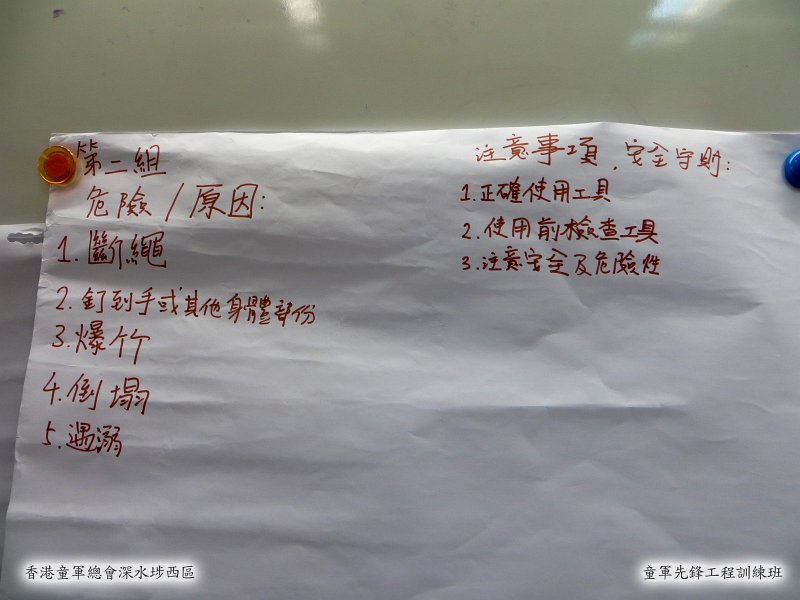 第二組
危險/原因:
1.斷繩
2.釘到手或其他身體部份
3.爆竹
4.倒塌
5.遇溺
注意事項,安全守則:
1.正確使用工具
2.使用前檢查工具
3.注意安全及危險性
香港童軍總會深水埗西區
童軍先鋒工程訓練班